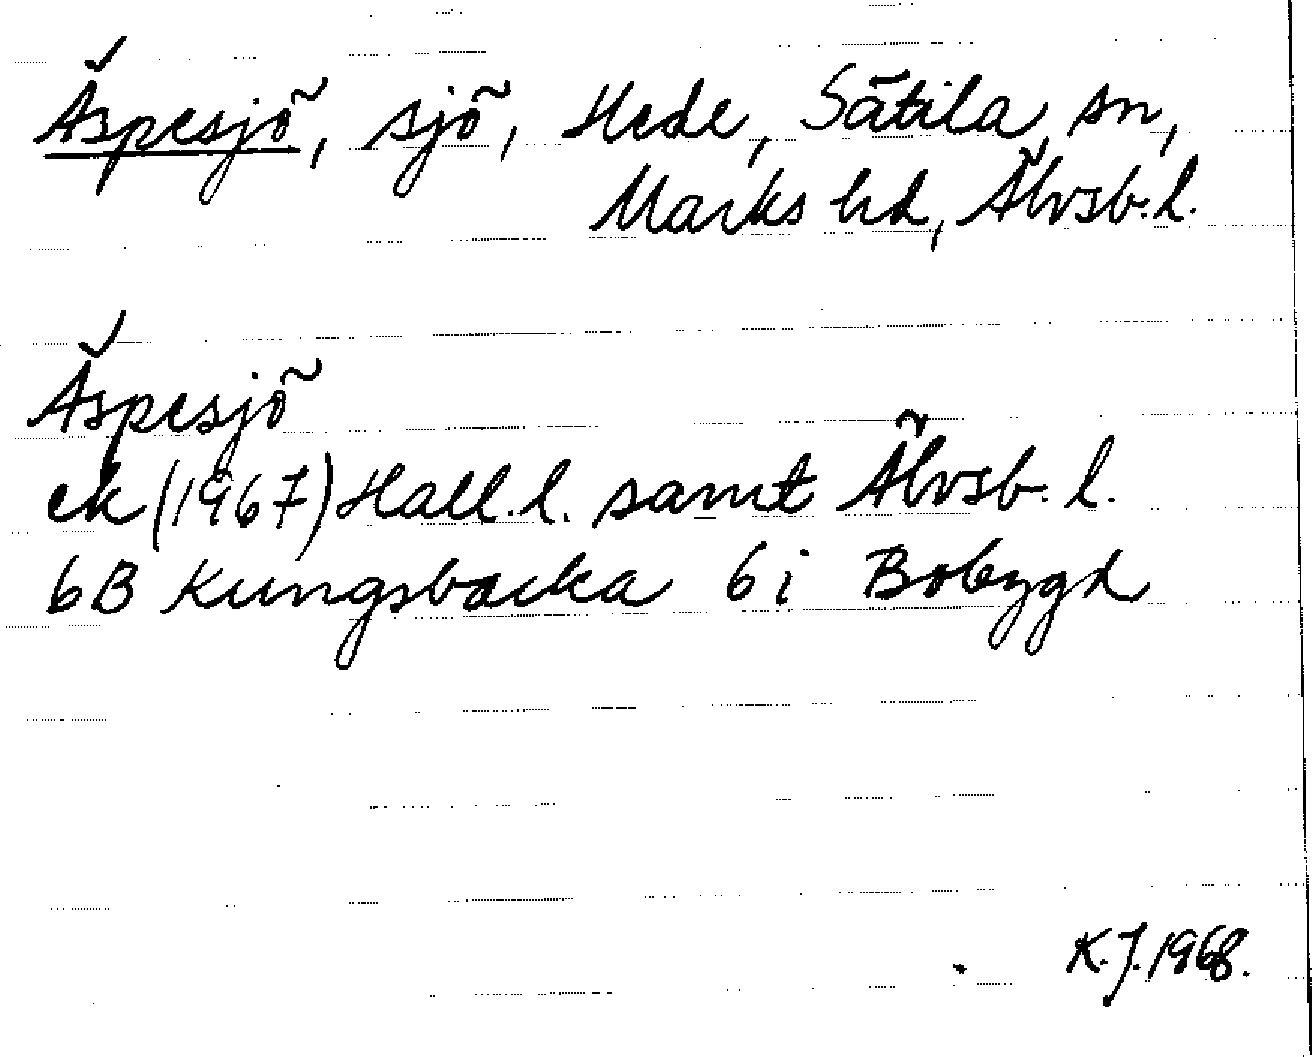 Äspesjö, sjö, Hede, Sätila sn,
Marks hd, Älvsb.l.
Äspesjö
ek (1967) Hall.l. samt Älvsb. l.
6B Kungsbacka 6i Bobygd
K.J. 1968.